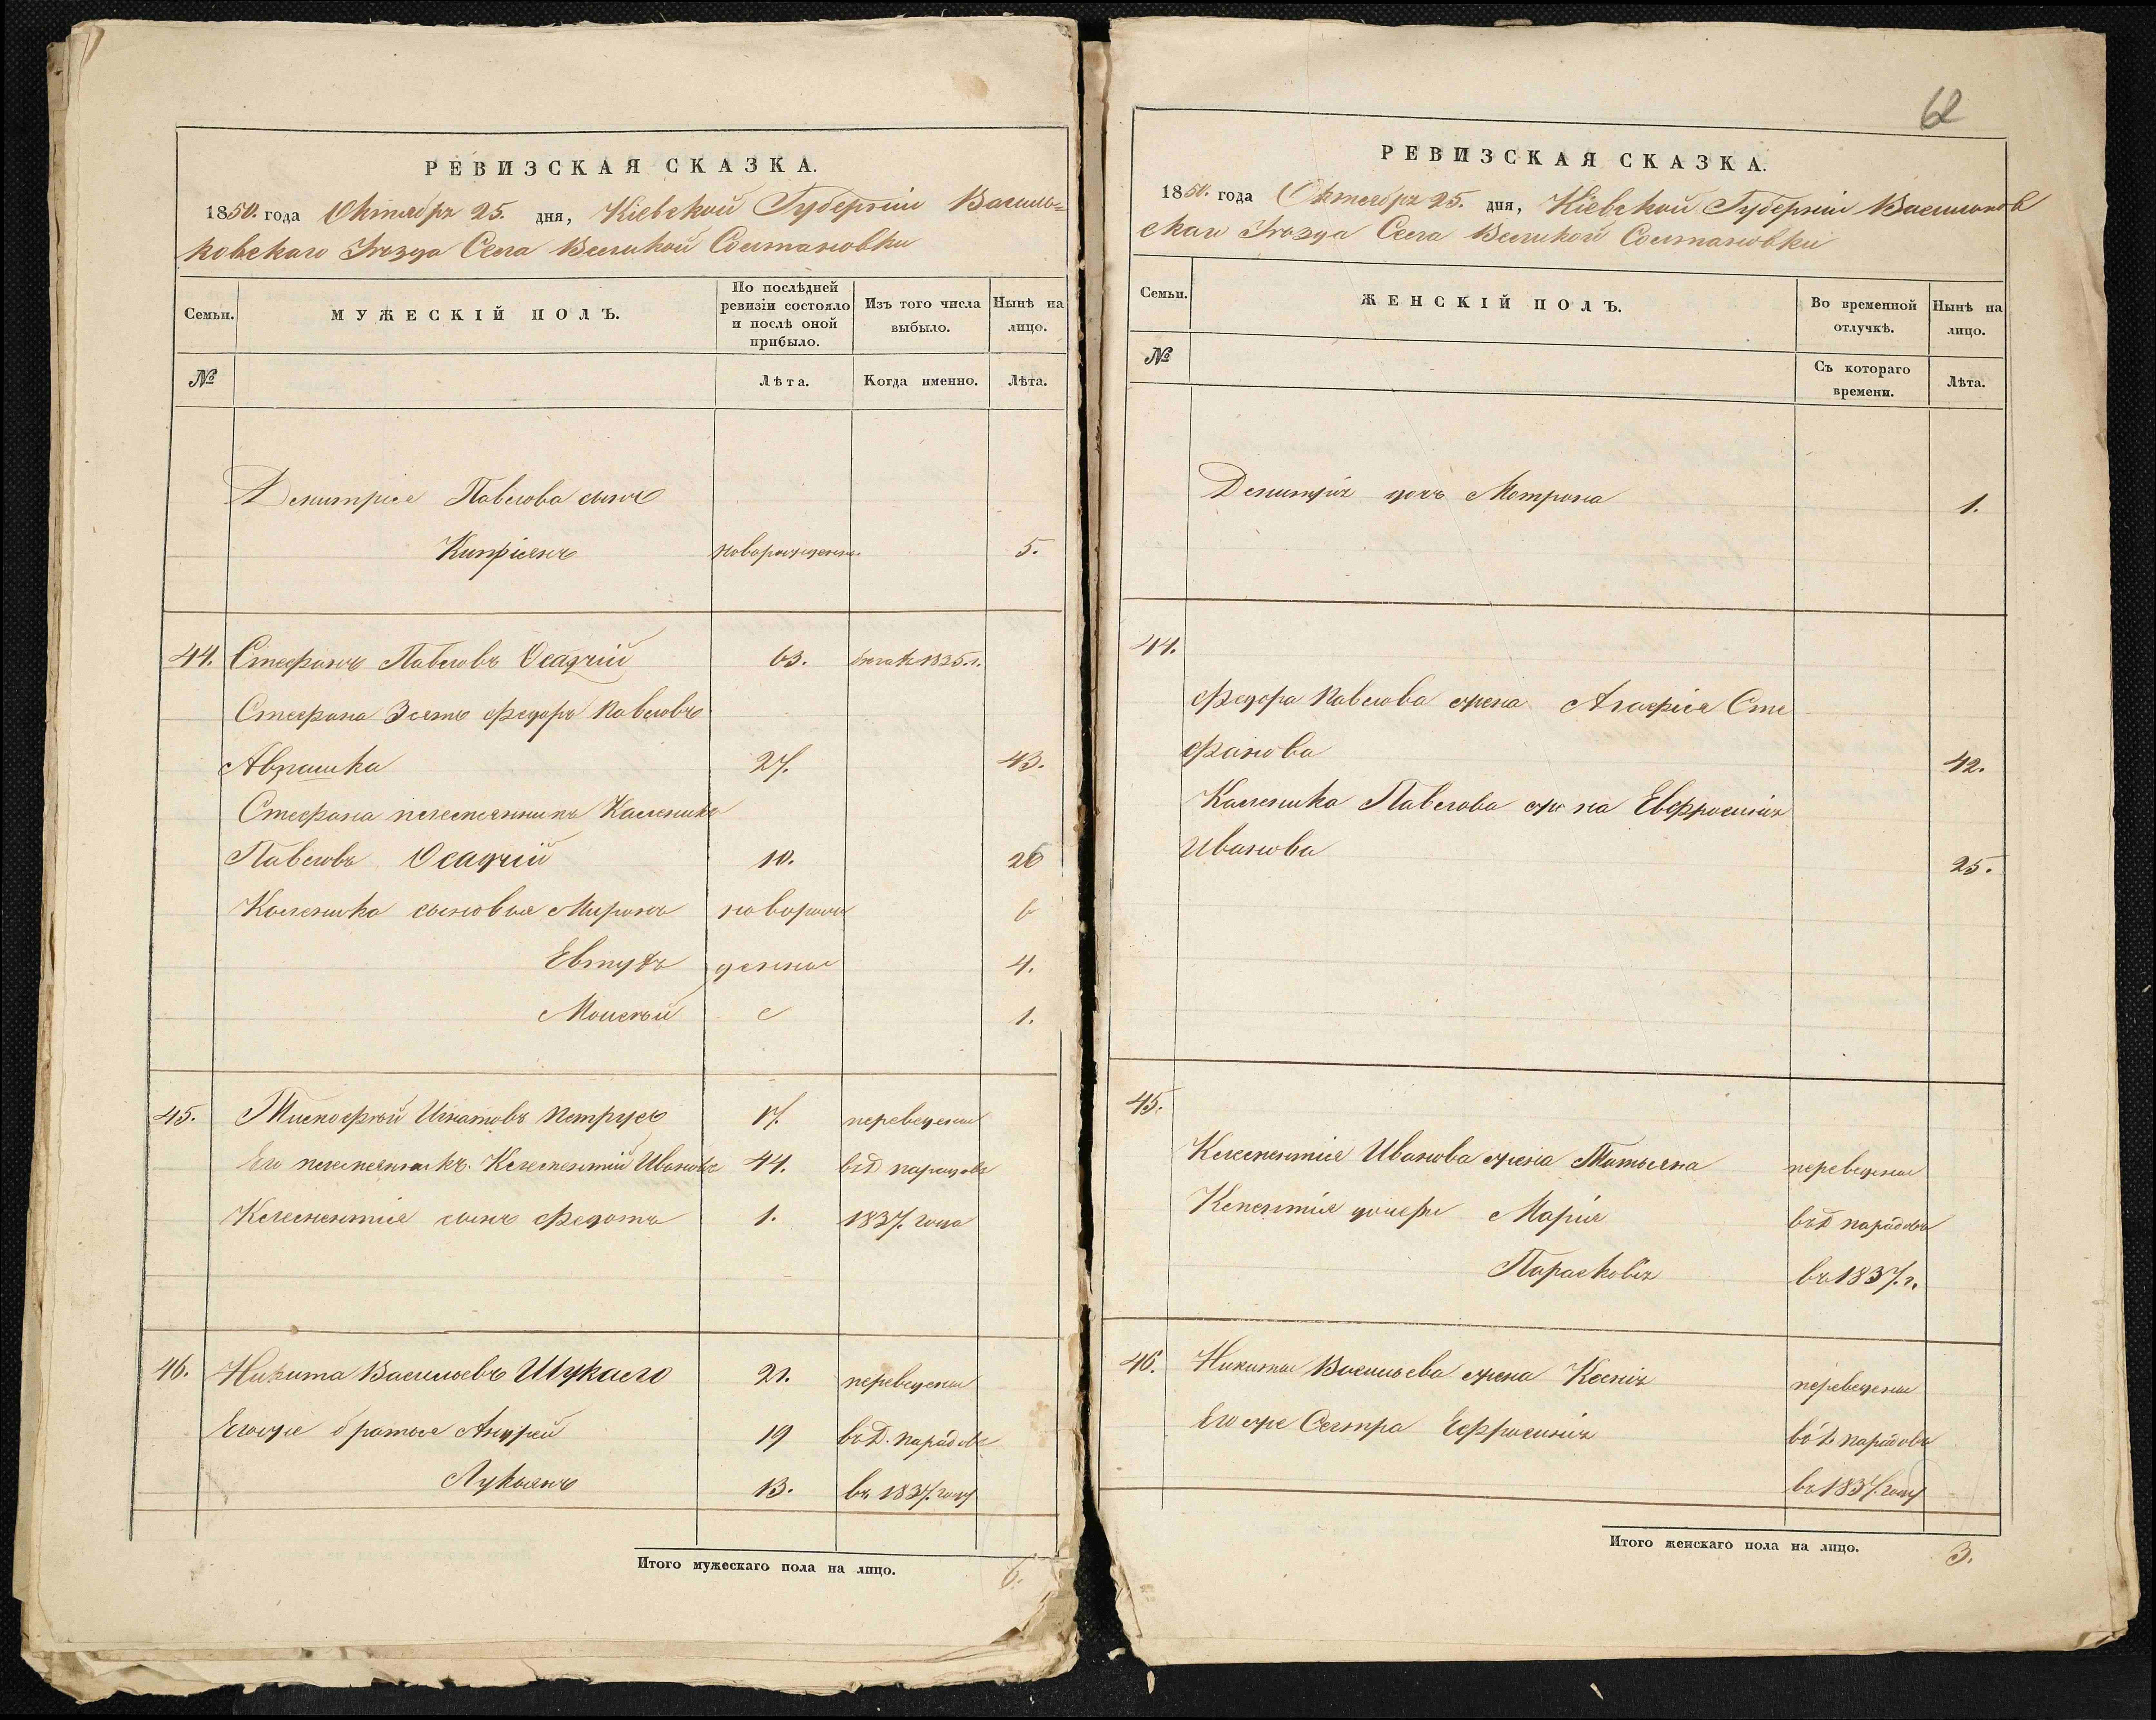 РЕВИЗСКАЯ СКАЗКА.
1850. года Октября 25. дня, Кіевской Губерніи Василь=
ковскаго Уѣзда Села Великой Солтановки
Семьи.
МУЖЕСКІЙ ПОЛЪ.
По послѣдней
ревизіи состояло
и послѣ оной
прибыло.
Изъ того числа
выбыло.
Нынѣ на
лицо.
№
Лѣта.
Когда именно.
Лѣта.
Демитрія Павлова сынъ
Кипріянъ новорожденны 5.
44. Стефанъ Павловъ Осадчій 63. 1835. г.
Стефана Зять Федоръ Павловъ
27. 43.
Стефана племянникъ Каленикъ
Павловъ Осадчій 10. 26
Каленика сыновья Миронъ новорож 6
Евтухъ денные 4.
Моисей 1.
45. Тимофѣй Игнатовъ Петрусь 17. переведены
Его племянникъ. Клементій Ивановъ 44. въ Д парадовъ
Клементія сынъ Федотъ 1. 1837. года
46. Никита Васильевъ Шукало 21. переведены
Егоже братья Андрей 19 въ Д. парадовъ
Лукьянъ 13. въ 1837. году
Итого мужескаго пола на лицо. 6.
62
РЕВИЗСКАЯ СКАЗКА.
1850. года Октября 25. дня, Кіевской Губерніи Васильков
скаго Уѣзда Села Великой Солтановки
Семьи.
ЖЕНСКІЙ ПОЛЪ.
Во временной
отлучкѣ.
Нынѣ на
лицо.
№
Съ котораго
времени.
Лѣта.
Демитрія дочь Мотрона 1.
44.
Федора Павлова жена Агафія Сте
фанова 42.
Каленика Павлова жена Евфросинія
Иванова 25.
45.
Клементія Иванова жена Татьяна переведены
Клементія дочери Марія въ Д парадовъ
Парасковія въ 1837. г.
46. Никиты Васильева жена Ксенія переведены
Его же Сестра Ефросинія въ Д парадовъ
въ 1837. году
Итого женскаго пола на лицо. 3.